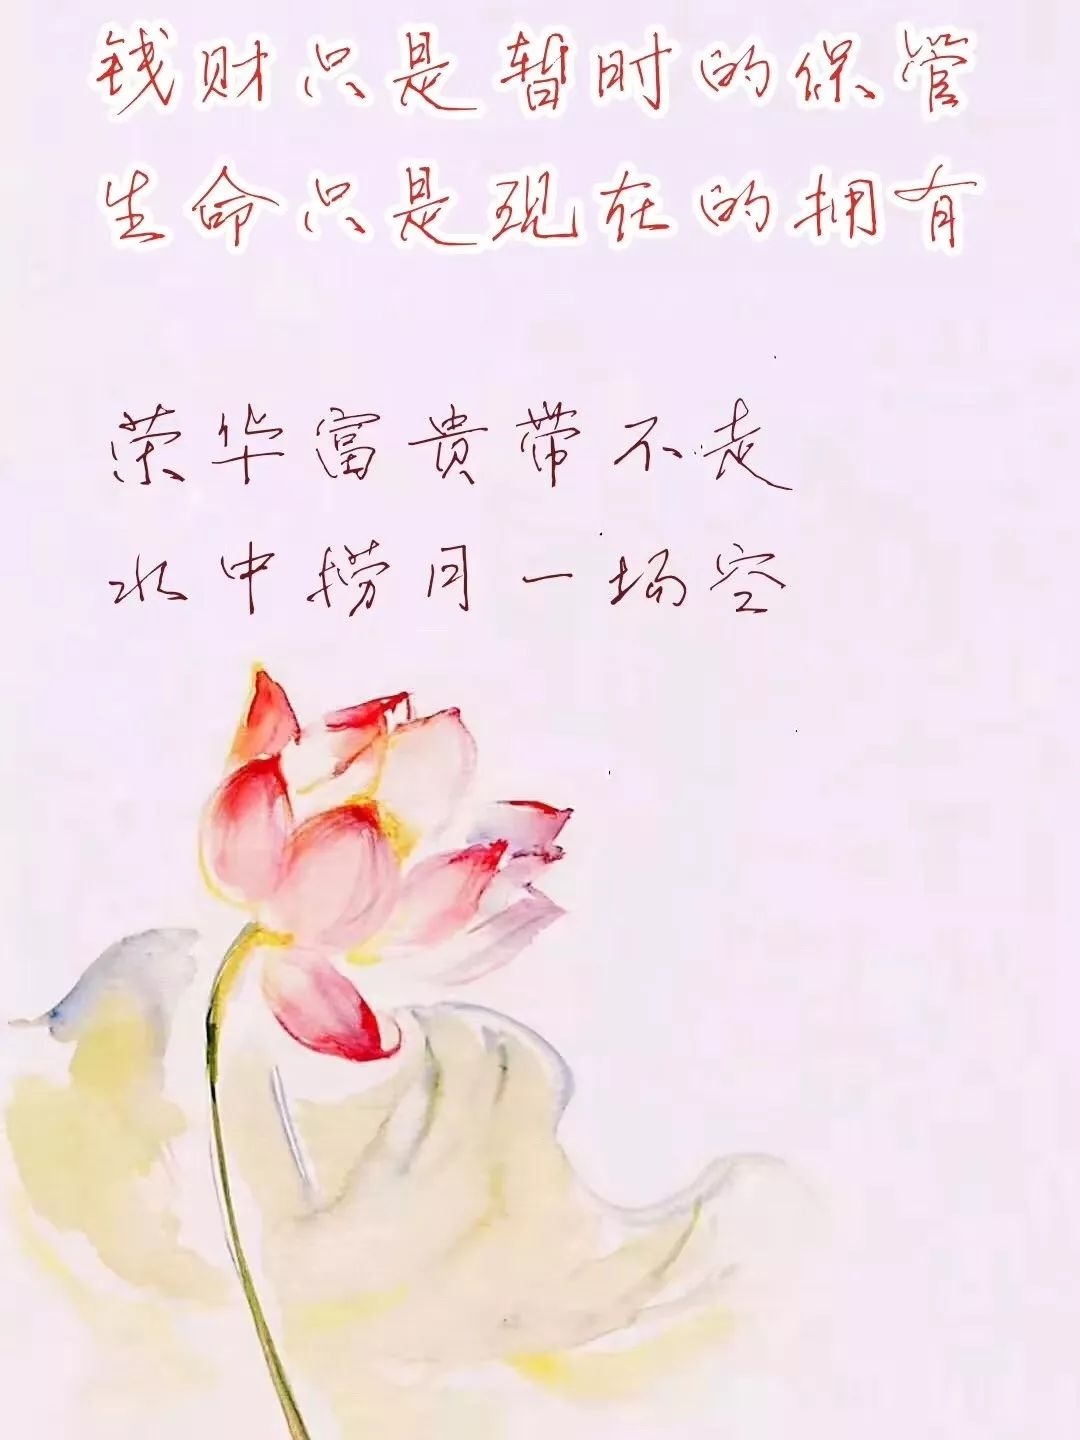 钱财只是暂时的保管
生命只是现在的拥有
荣华富贵带不走
水中捞月一场空